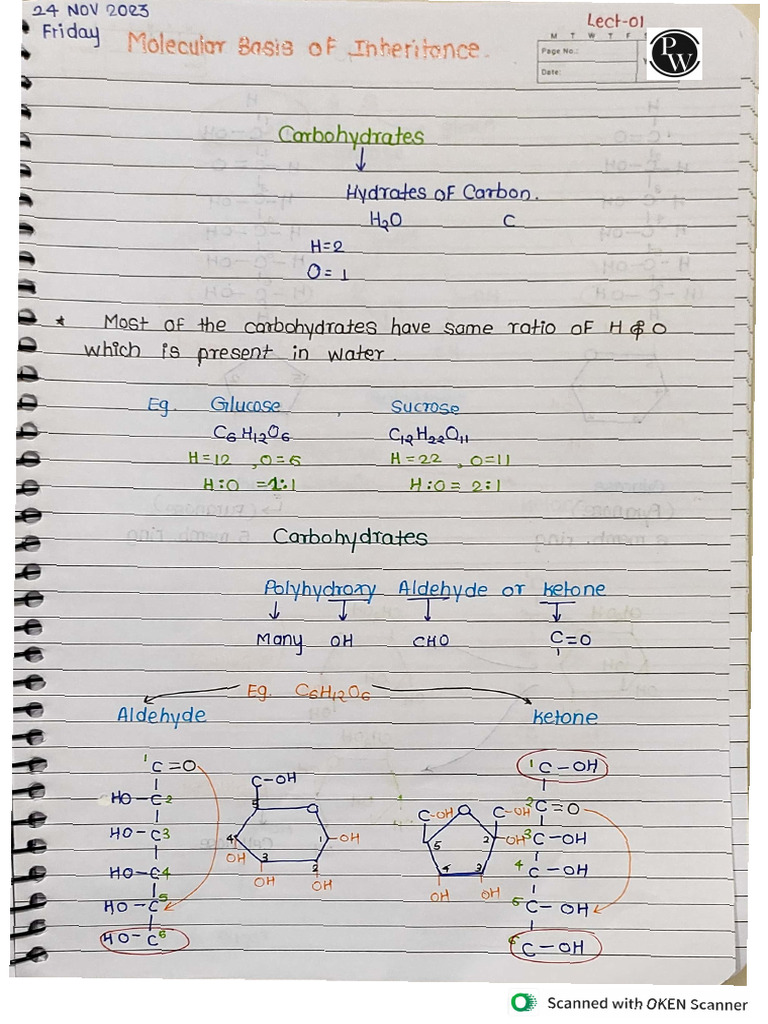 24 NOV 2023
Friday
Lect-01
M T W T F
Page No.:
Date:
PW
Molecular Basis of Inheritance.
Carbohydrates
Hydrates of Carbon.
H₂O C
H=2
O=1
* Most of the carbohydrates have same ratio of H & O
which is present in water.
Eg. Glucose , Sucrose
C₆H₁₂O₆ C₁₂H₂₂O₁₁
H=12 , O=6 H=22 , O=11
H:O =1:1 H:O = 2:1
Carbohydrates
Polyhydroxy Aldehyde or Ketone
Many OH CHO C=O
Eg. C₆H₁₂O₆
Aldehyde Ketone
1 C=O
HO-C 2
HO-C 3
HO-C 4
HO-C 5
HO-C 6
C-OH
5 O
4 1 OH
OH 3 2
OH OH
C-OH O C-OH
5 2 OH
4 3
OH OH
1 C-OH
2 C=O
3 C-OH
4 C-OH
5 C-OH
6 C-OH
Scanned with OKEN Scanner